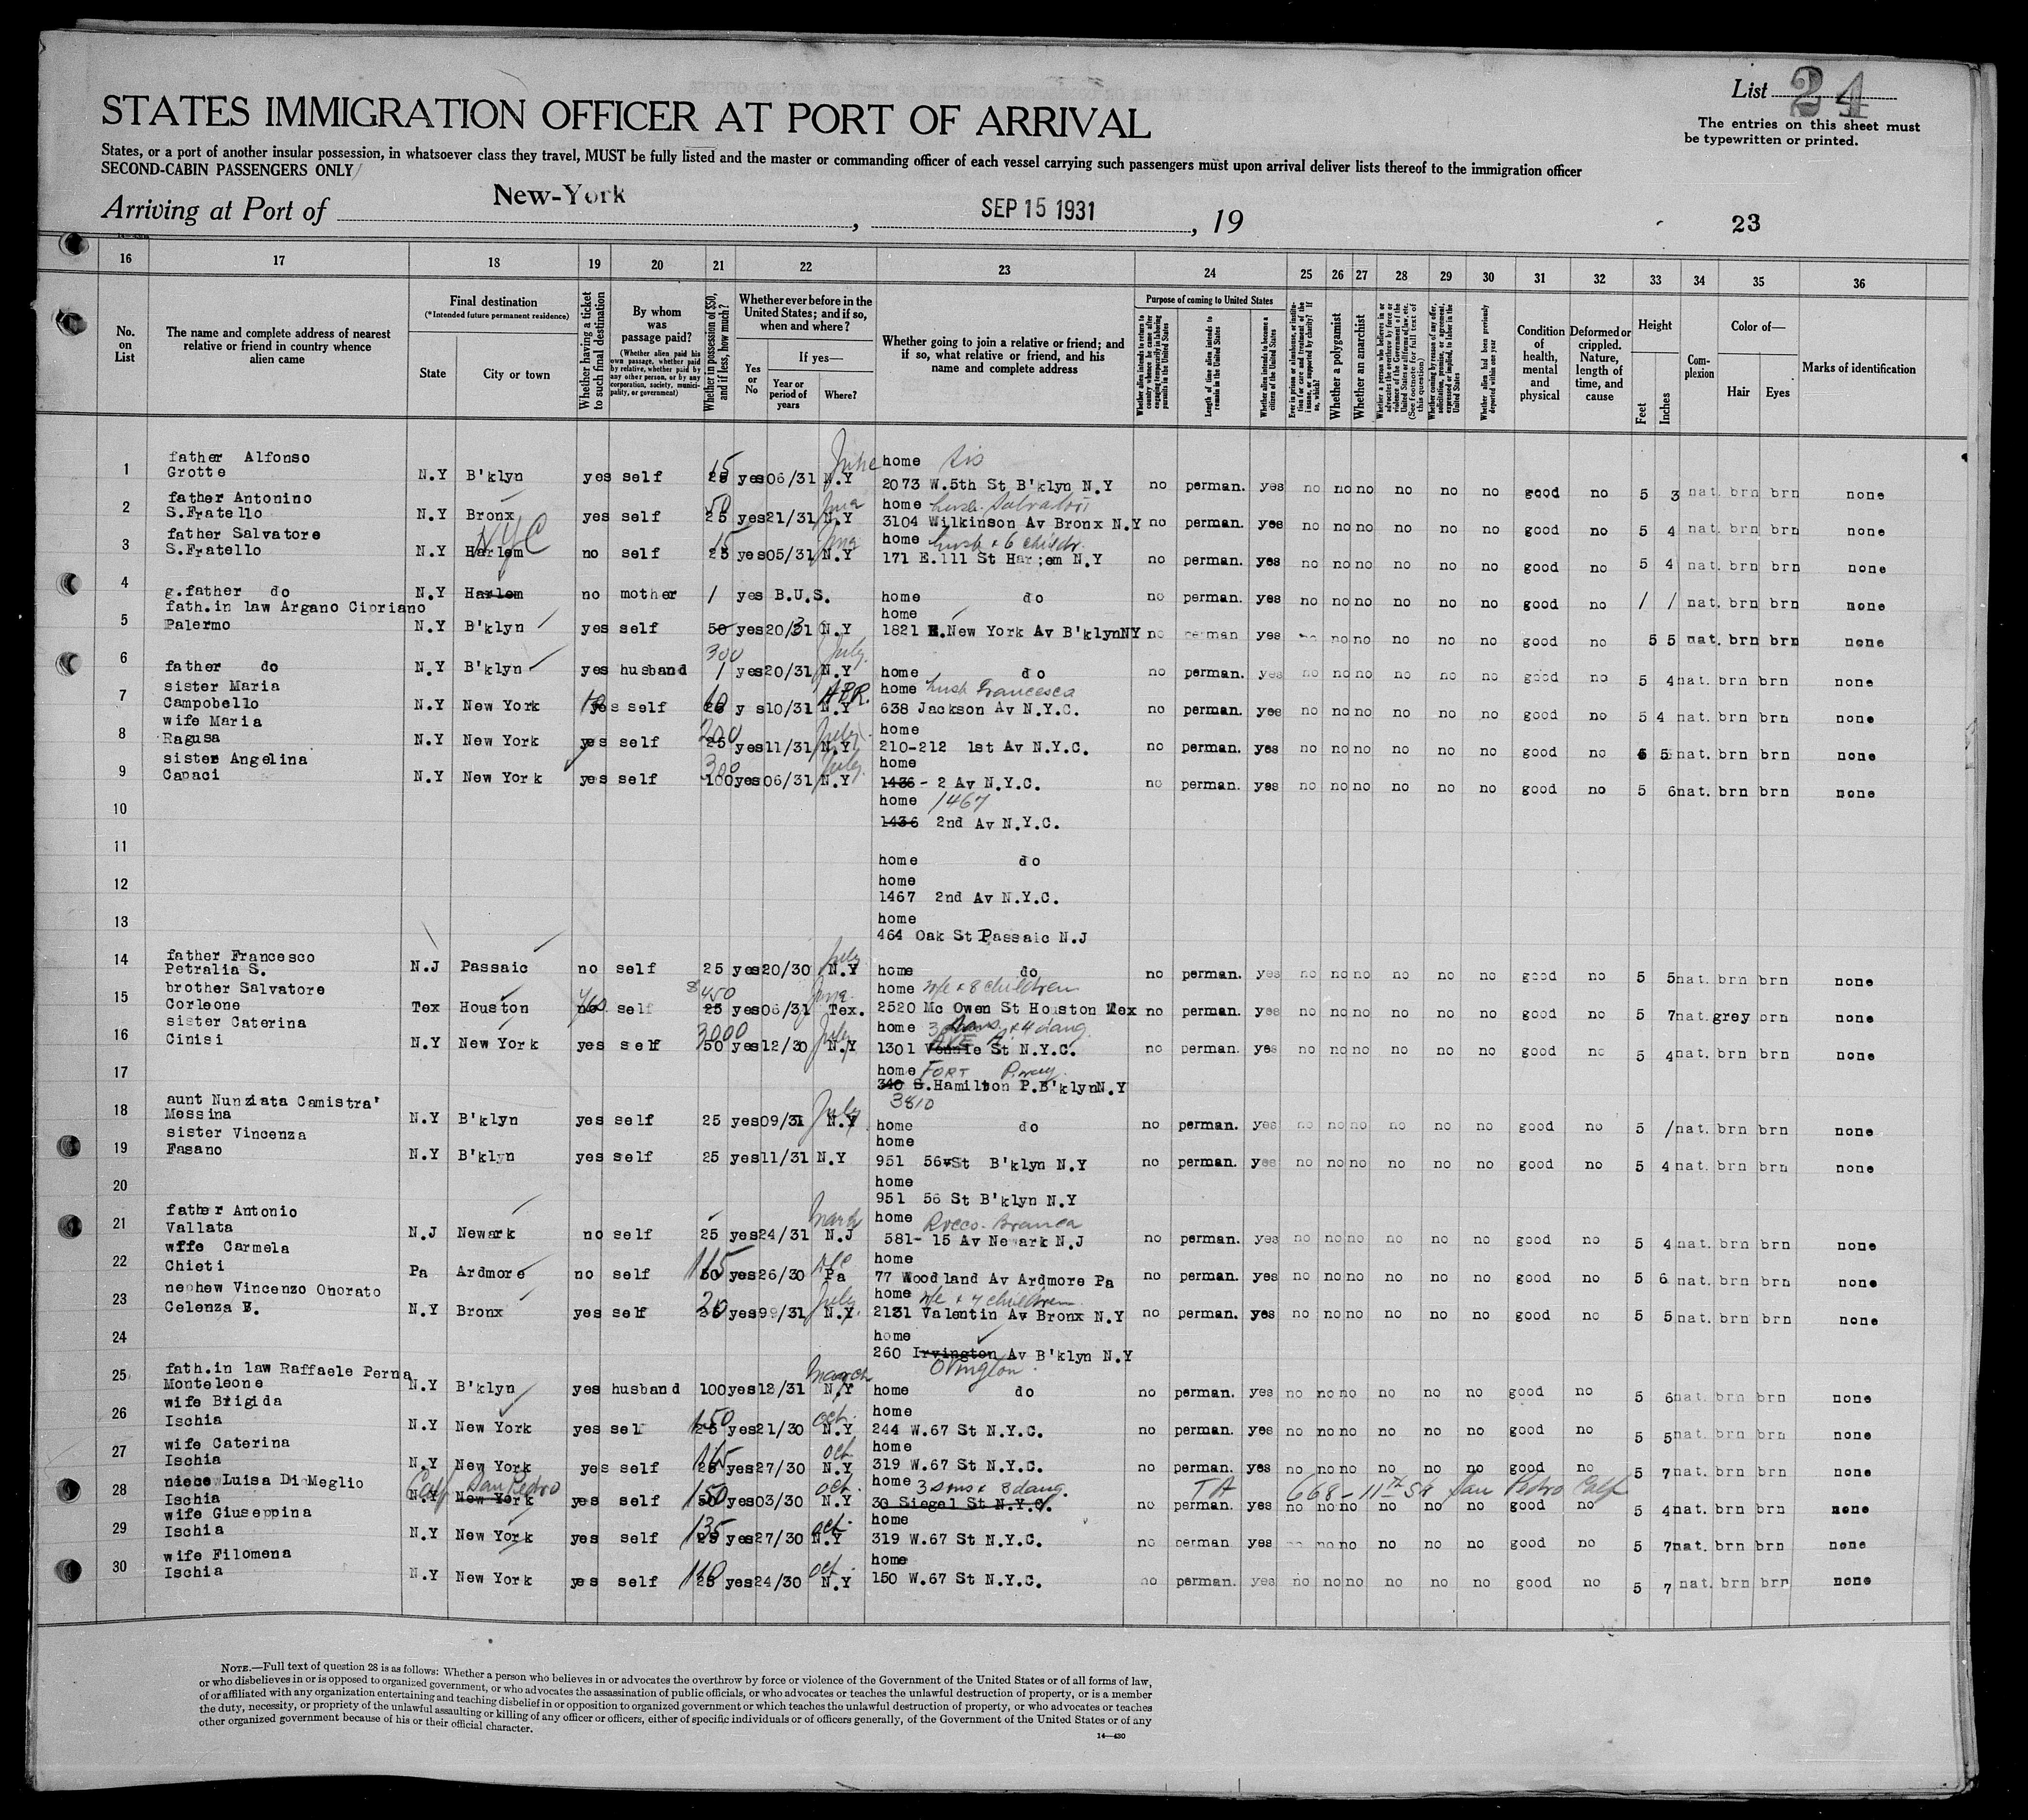 List 24
STATES IMMIGRATION OFFICER AT PORT OF ARRIVAL
The entries on this sheet must
be typewritten or printed.
States, or a port of another insular possession, in whatsoever class they travel, MUST be fully listed and the master or commanding officer of each vessel carrying such passengers must upon arrival deliver lists thereof to the immigration officer
SECOND-CABIN PASSENGERS ONLY
Arriving at Port of New-York, SEP 15 1931, 19 23
16 17 18 19 20 21 22 23 24 25 26 27 28 29 30 31 32 33 34 35 36
No. on List
The name and complete address of nearest relative or friend in country whence alien came
Final destination (*Intended future permanent residence)
State City or town
Whether having a ticket to such final destination
By whom was passage paid?
(Whether alien paid his own passage, whether paid by relative, whether paid by any other person, or by any corporation, society, municipality, or government)
Whether in possession of $50, and if less, how much?
Whether ever before in the United States; and if so, when and where?
Yes or No If yes— Year or period of years Where?
Whether going to join a relative or friend; and if so, what relative or friend, and his name and complete address
Purpose of coming to United States
Whether alien intends to return to country whence he came after engaging temporarily in laboring pursuits in the United States
Length of time alien intends to remain in the United States
Whether alien intends to become a citizen of the United States
Whether a polygamist
Whether an anarchist
Condition of health, mental and physical
Deformed or crippled. Nature, length of time, and cause
Height Feet Inches
Complexion
Color of— Hair Eyes
Marks of identification
1 father Alfonso Grotte N.Y B'klyn yes self 25 15 yes 06/31 June N.Y home sis 2073 W.5th St B'klyn N.Y no perman. yes no no no no no no good no 5 3 nat. brn brn none
2 father Antonino S.Fratello N.Y Bronx yes self 25 50 yes 21/31 N.Y home husb. Salvatori 3104 Wilkinson Av Bronx N.Y no perman. yes no no no no no no good no 5 4 nat. brn brn none
3 father Salvatore S.Fratello N.Y Harlem NYC no self 25 15 yes 05/31 N.Y home husb & 6 childr. 171 E.111 St Har;em N.Y no perman. yes no no no no no no good no 5 4 nat. brn brn none
4 g.father do N.Y Harlem no mother / yes B.U.S. home do no perman. yes no no no no no no good no / / nat. brn brn none
5 fath.in law Argano Cipriano Palermo N.Y B'klyn yes self 50 yes 20/31 N.Y home 1821 E.New York Av B'klynNY no perman yes no no no no no no good no 5 5 nat. brn brn none
6 father do N.Y B'klyn yes husband 300 / yes 20/31 July N.Y home do no perman. yes no no no no no no good no 5 4 nat. brn brn none
7 sister Maria Campobello N.Y New York yes self 10 y s 10/31 APR. N.Y home husb Francesca 638 Jackson Av N.Y.C. no perman. yes no no no no no no good no 5 4 nat. brn brn none
8 wife Maria Ragusa N.Y New York yes self 25 200 yes 11/31 July N.Y home 210-212 1st Av N.Y.C. no perman. yes no no no no no no good no 5 5 nat. brn brn none
9 sister Angelina Capaci N.Y New York yes self 100 300 yes 06/31 July N.Y home 1436 - 2 Av N.Y.C. no perman. yes no no no no no no good no 5 6 nat. brn brn none
10 home 1467 1436 2nd Av N.Y.C.
11 home do
12 home 1467 2nd Av N.Y.C.
13 home 464 Oak St Passaic N.J
14 father Francesco Petralia S. N.J Passaic no self 25 yes 20/30 July N.Y home do no perman. yes no no no no no no good no 5 5 nat. brn brn none
15 brother Salvatore Corleone Tex Houston no yes self 25 $450 yes 06/31 Tex. home w/e & 8 children 2520 Mc Owen St Houston Tex no perman. yes no no no no no no good no 5 7 nat. grey brn none
16 sister Caterina Cinisi N.Y New York yes self 50 3000 yes 12/30 July N.Y home 3 sons & 4 daug. 1301 AVE A St N.Y.C. no perman. yes no no no no no no good no 5 4 nat. brn brn none
17 home FORT P.way 340 S.Hamilton P.B'klynN.Y 3810
18 aunt Nunziata Camistra' Messina N.Y B'klyn yes self 25 yes 09/31 July N.Y home do no perman. yes no no no no no no good no 5 / nat. brn brn none
19 sister Vincenza Fasano N.Y B'klyn yes self 25 yes 11/31 N.Y home 951 56 St B'klyn N.Y no perman. yes no no no no no no good no 5 4 nat. brn brn none
20 home 951 56 St B'klyn N.Y
21 father Antonio Vallata N.J Newark no self 25 yes 24/31 March N.J home Rocco Branca 581- 15 Av Newark N.J no perman. yes no no no no no no good no 5 4 nat. brn brn none
22 wffe Carmela Chieti Pa Ardmore no self 50 115 yes 26/30 Pa home 77 Woodland Av Ardmore Pa no perman. yes no no no no no no good no 5 6 nat. brn brn none
23 nephew Vincenzo Onorato Celenza V. N.Y Bronx yes self 25 20 yes 99/31 July N.Y. home w/e & 7 children 2131 Valentin Av Bronx N.Y no perman. yes no no no no no no good no 5 5 nat. brn brn none
24 home 260 Irvington Av B'klyn N.Y Ovington
25 fath.in law Raffaele Perna Monteleone N.Y B'klyn yes husband 100 yes 12/31 March N.Y home do no perman. yes no no no no no no good no 5 6 nat. brn brn none
26 wife Brigida Ischia N.Y New York yes self 25 150 yes 21/30 oct. N.Y home 244 W.67 St N.Y.C. no perman. yes no no no no no no good no 5 5 nat. brn brn none
27 wife Caterina Ischia N.Y New York yes self 25 165 yes 27/30 oct N.Y home 319 W.67 St N.Y.C. no perman. yes no no no no no no good no 5 7 nat. brn brn none
28 niece Luisa Di Meglio Ischia N.Y New York Calf San Pedro yes self 50 150 yes 03/30 oct. N.Y home 3 sons & 8 daug. 30 Siegel St N.Y.C. TA 668-11th St San Pedro Calf no perman. yes no no no no no no good no 5 4 nat. brn brn none
29 wife Giuseppina Ischia N.Y New York yes self 25 135 yes 27/30 oct. N.Y home 319 W.67 St N.Y.C. no perman yes no no no no no good no 5 7 nat. brn brn none
30 wife Filomena Ischia N.Y New York yes self 25 110 yes 24/30 oct. N.Y home 150 W.67 St N.Y.C. no perman. yes no no no no no no good no 5 7 nat. brn brn none
NOTE.—Full text of question 28 is as follows: Whether a person who believes in or advocates the overthrow by force or violence of the Government of the United States or of all forms of law,
or who disbelieves in or is opposed to organized government, or who advocates the assassination of public officials, or who advocates or teaches the unlawful destruction of property, or is a member
of or affiliated with any organization entertaining and teaching disbelief in or opposition to organized government or which teaches the unlawful destruction of property, or who advocates or teaches
the duty, necessity, or propriety of the unlawful assaulting or killing of any officer or officers, either of specific individuals or of officers generally, of the Government of the United States or of any
other organized government because of his or their official character.
14—430